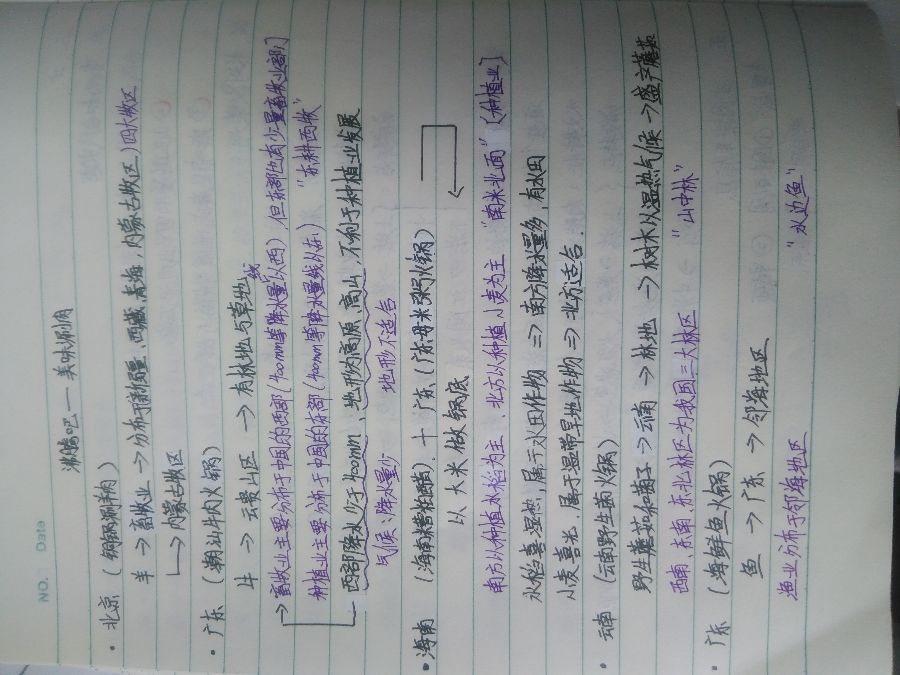 NO.
Date
沸腾吧——美味涮角
· 北京 (铜锅涮羊肉)
羊 → 畜牧业 → 分布于新疆、西藏、青海、内蒙古牧区) 四大牧区
→ 内蒙古牧区
· 广东 (潮汕牛肉火锅)
牛 → 云贵山区 → 有林地与草地线
→ 畜牧业主要分布于中国的西部 (400mm等降水量以西), 但东部也有少量畜牧业部门
种植业主要分布于中国的东部 (400mm等降水量线以东) "东耕西牧"
西部降水少于400mm、地形为高原、高山, 不利于种植业发展
气候: 降水量少 地形不适合
· 海南 (海南糟粕醋) + 广东 (广东毋米粥火锅)
以大米做锅底
南方以种植水稻为主、北方以种植小麦为主 "南米北面" [种植业]
水稻喜湿热, 属于水田作物 ⇒ 南方降水量多, 有水田
小麦喜光, 属于温带旱地作物 ⇒ 北方适合.
· 云南 (云南野生菌火锅)
野生蘑菇和菌子 → 云南 → 林地 → 树木从温热气候 → 盛产蘑菇
西南、东南、东北林区为我国三大林区 "山中林"
· 广东 (海鲜鱼火锅)
鱼 → 广东 → 邻海地区
渔业分布于邻海地区 "水边鱼"